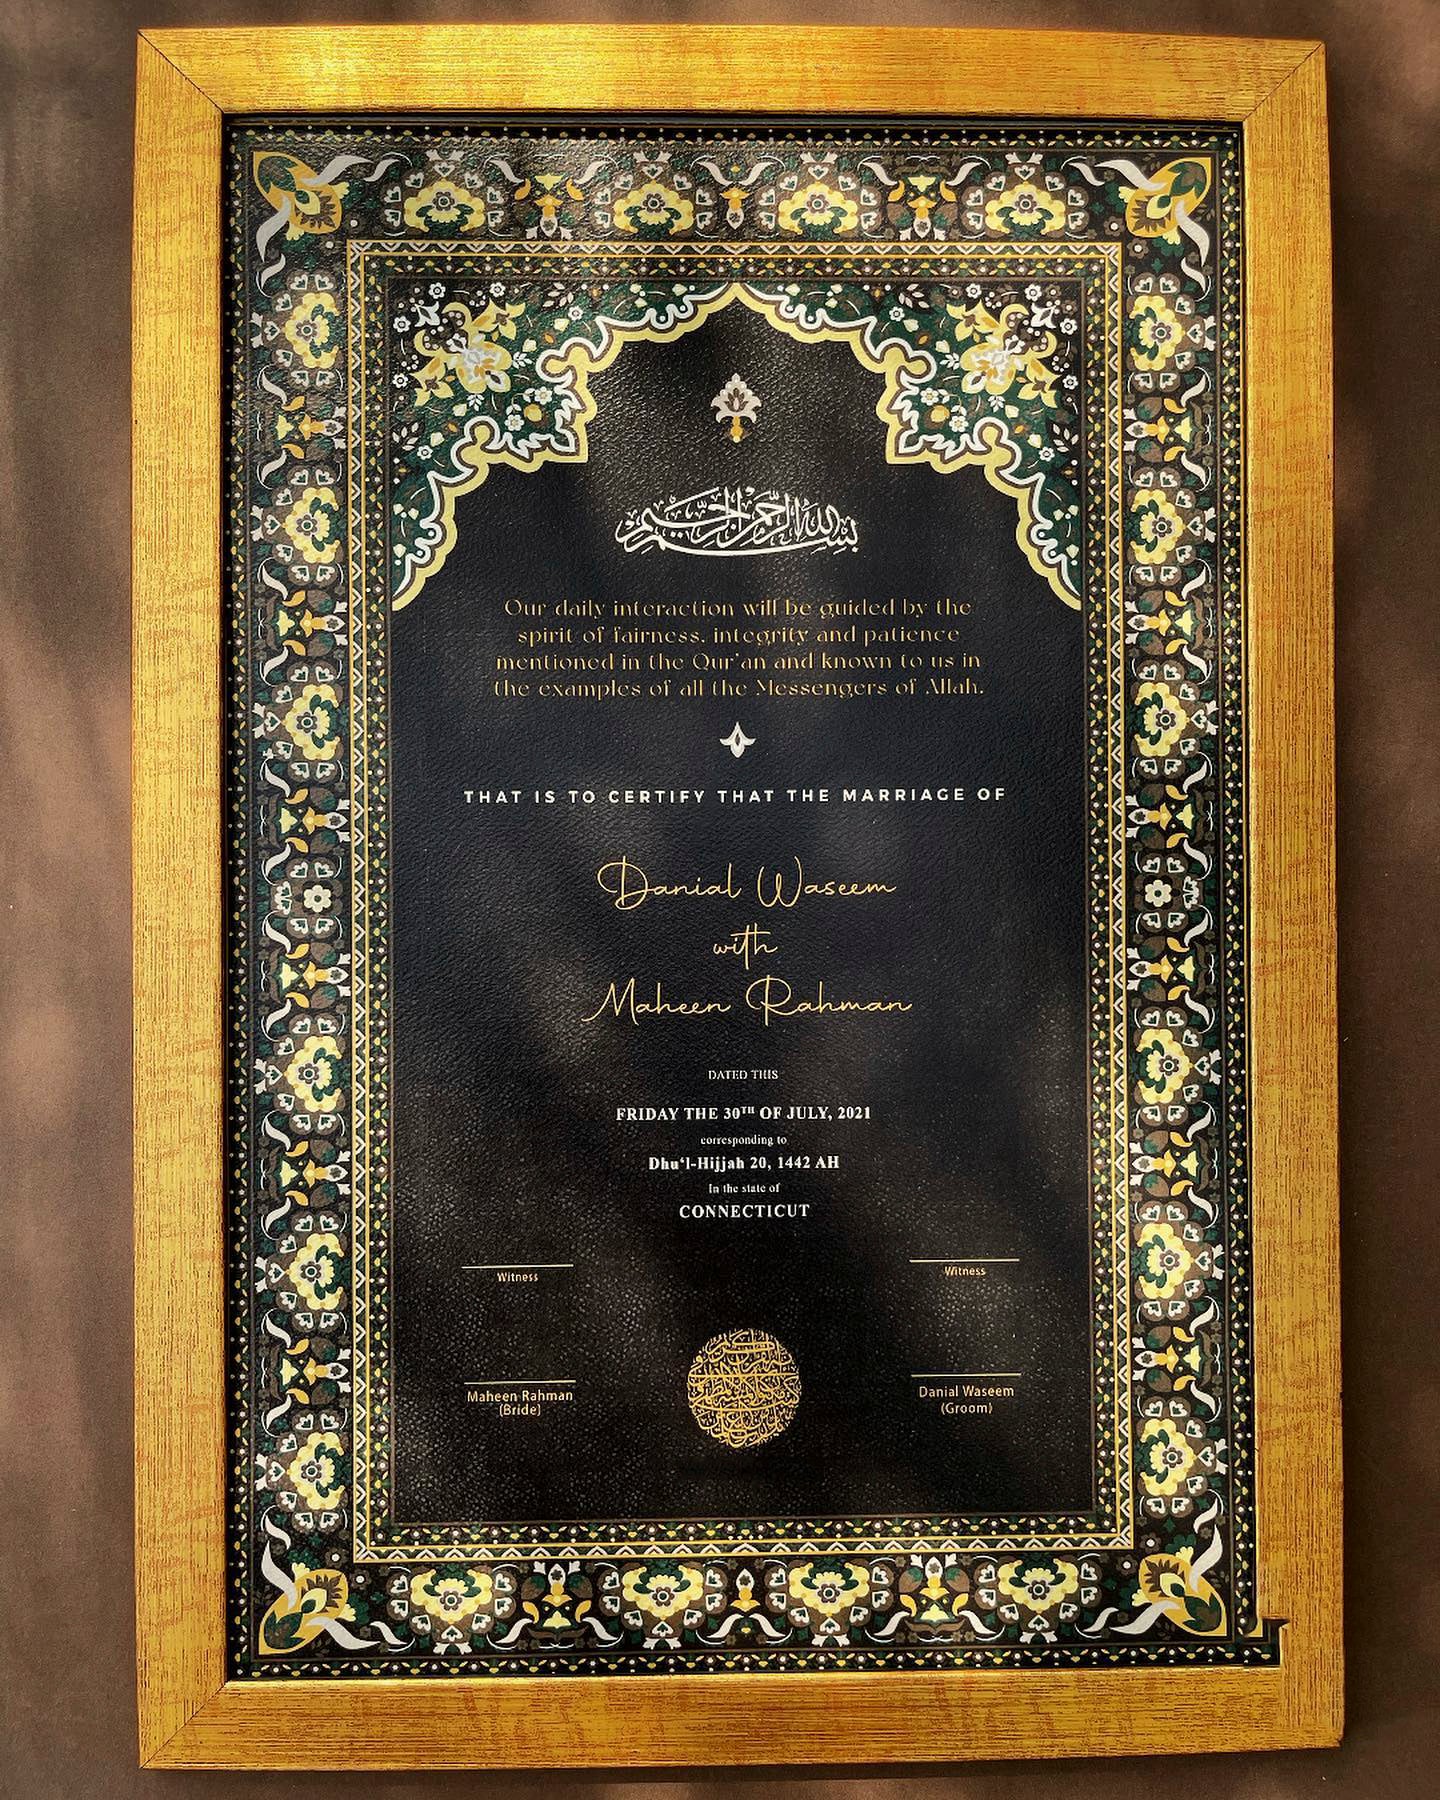 بسم الله الرحمن الرحيم
Our daily interaction will be guided by the
spirit of fairness, integrity and patience
mentioned in the Qur'an and known to us in
the examples of all the Messengers of Allah.
THAT IS TO CERTIFY THAT THE MARRIAGE OF
Danial Waseem
with
Maheen Rahman
DATED THIS
FRIDAY THE 30TH OF JULY, 2021
corresponding to
Dhu‘l-Hijjah 20, 1442 AH
In the state of
CONNECTICUT
Witness
Witness
Maheen Rahman
(Bride)
Danial Waseem
(Groom)